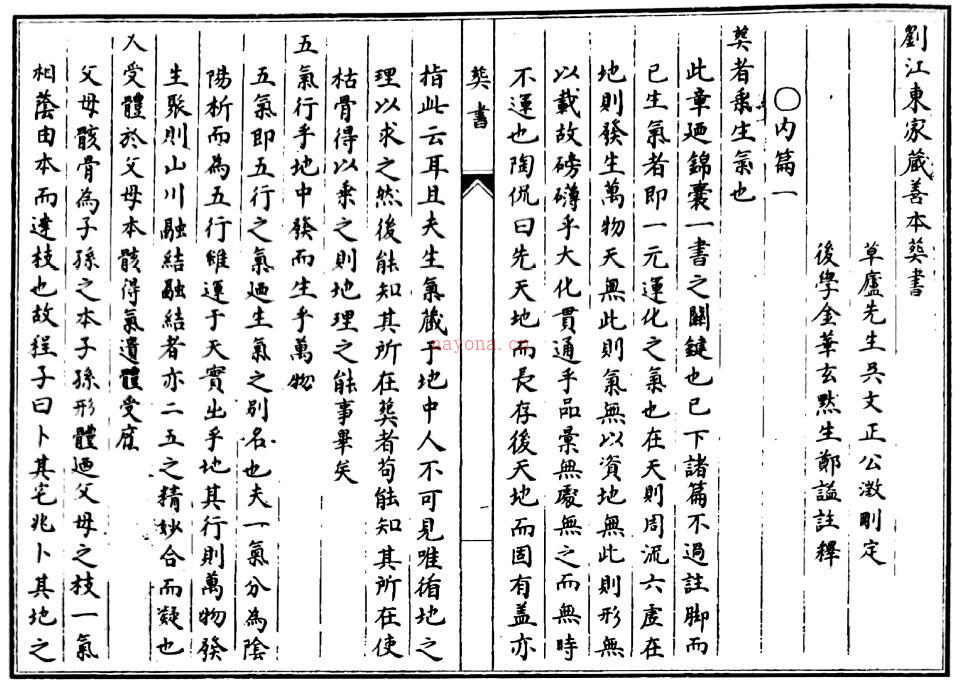 劉江東家藏善本葬書
草廬先生吳文正公澂刪定
後學金華玄默生鄭謐註釋
○內篇一
葬者乗生氣也
此章廼錦囊一書之關鍵也已下諸篇不過註脚而
已生氣者即一元運化之氣也在天則周流六虛在
地則發生萬物天無此則氣無以資地無此則形無
以載故磅礴乎大化貫通乎品彙無處無之而無時
不運也陶侃曰先天地而長存後天地而固有盖亦
葬書
指此云耳且夫生氣藏于地中人不可見唯循地之
理以求之然後能知其所在葬者苟能知其所在使
枯骨得以乗之則地理之能事畢矣
五氣行乎地中發而生乎萬物
五氣即五行之氣廼生氣之別名也夫一氣分為陰
陽析而為五行雖運于天實出乎地其行則萬物發
生聚則山川融結融結者亦二五之精妙合而凝也
人受體於父母本骸得氣遺體受廕
父母骸骨為子孫之本子孫形體廼父母之枝一氣
相蔭由本而達枝也故程子曰卜其宅兆卜其地之
nayona.cn